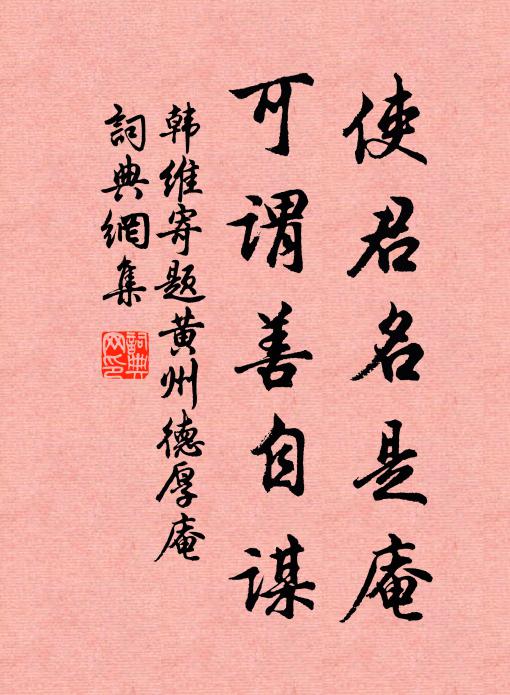 使君名是庵
可谓善自谋
韩维寄题黄州德厚庵
詞典網集
詞典网印